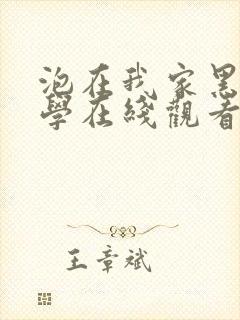 泡在我家黑
學在綫觀看
王章斌